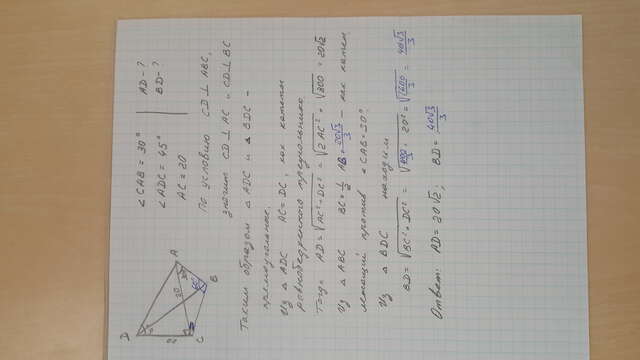 ∠CAB = 30°
∠ADC = 45°
AC = 20
AD - ?
BD - ?
По условию CD ⊥ ABC,
значит CD ⊥ AC и CD ⊥ BC
Таким образом △ ADC и △ BDC -
прямоугольные.
Из △ ADC AC = DC, как катеты
равнобедренного треугольника
Тогда AD = √AC² + DC² = √2 AC² = √800 = 20√2
Из △ ABC BC = 1/2 AB = 20√3/3 - как катет,
лежащий против ∠CAB = 30°.
Из △ BDC находим
BD = √BC² + DC² = √400/3 + 20² = √1600/3 = 40√3/3
Ответ: AD = 20√2; BD = 40√3/3
A
B
C
D
30
20